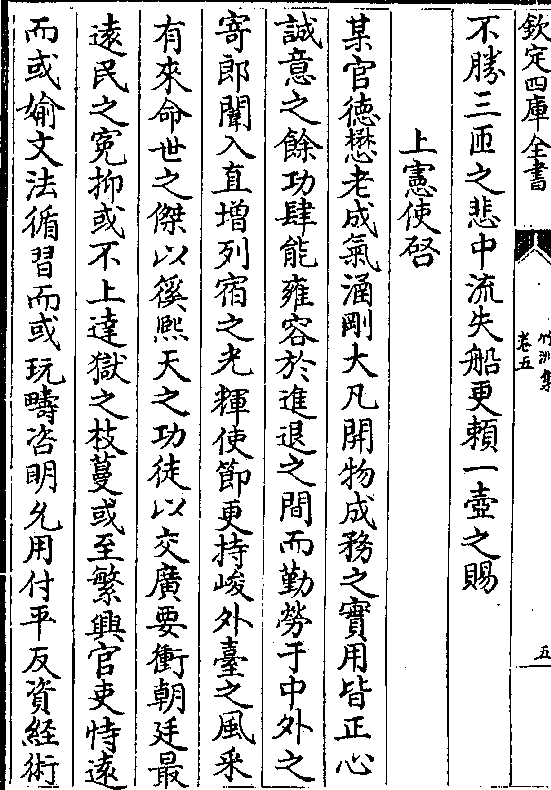 欽定四庫全書
竹洲集
卷五
五
不勝三匝之悲中流失船更賴一壺之賜
上憲使啓
某官德懋老成氣涵剛大凡開物成務之實用皆正心
誠意之餘功肆能雍容於進退之間而勤勞于中外之
寄郎闈入直增列宿之光輝使節更持峻外臺之風采
有來命世之傑以徯熙天之功徒以交廣要衝朝廷最
遠民之寃抑或不上達獄之枝蔓或至繁興官吏恃遠
而或媮文法循習而或玩疇咨明允用付平反資經術